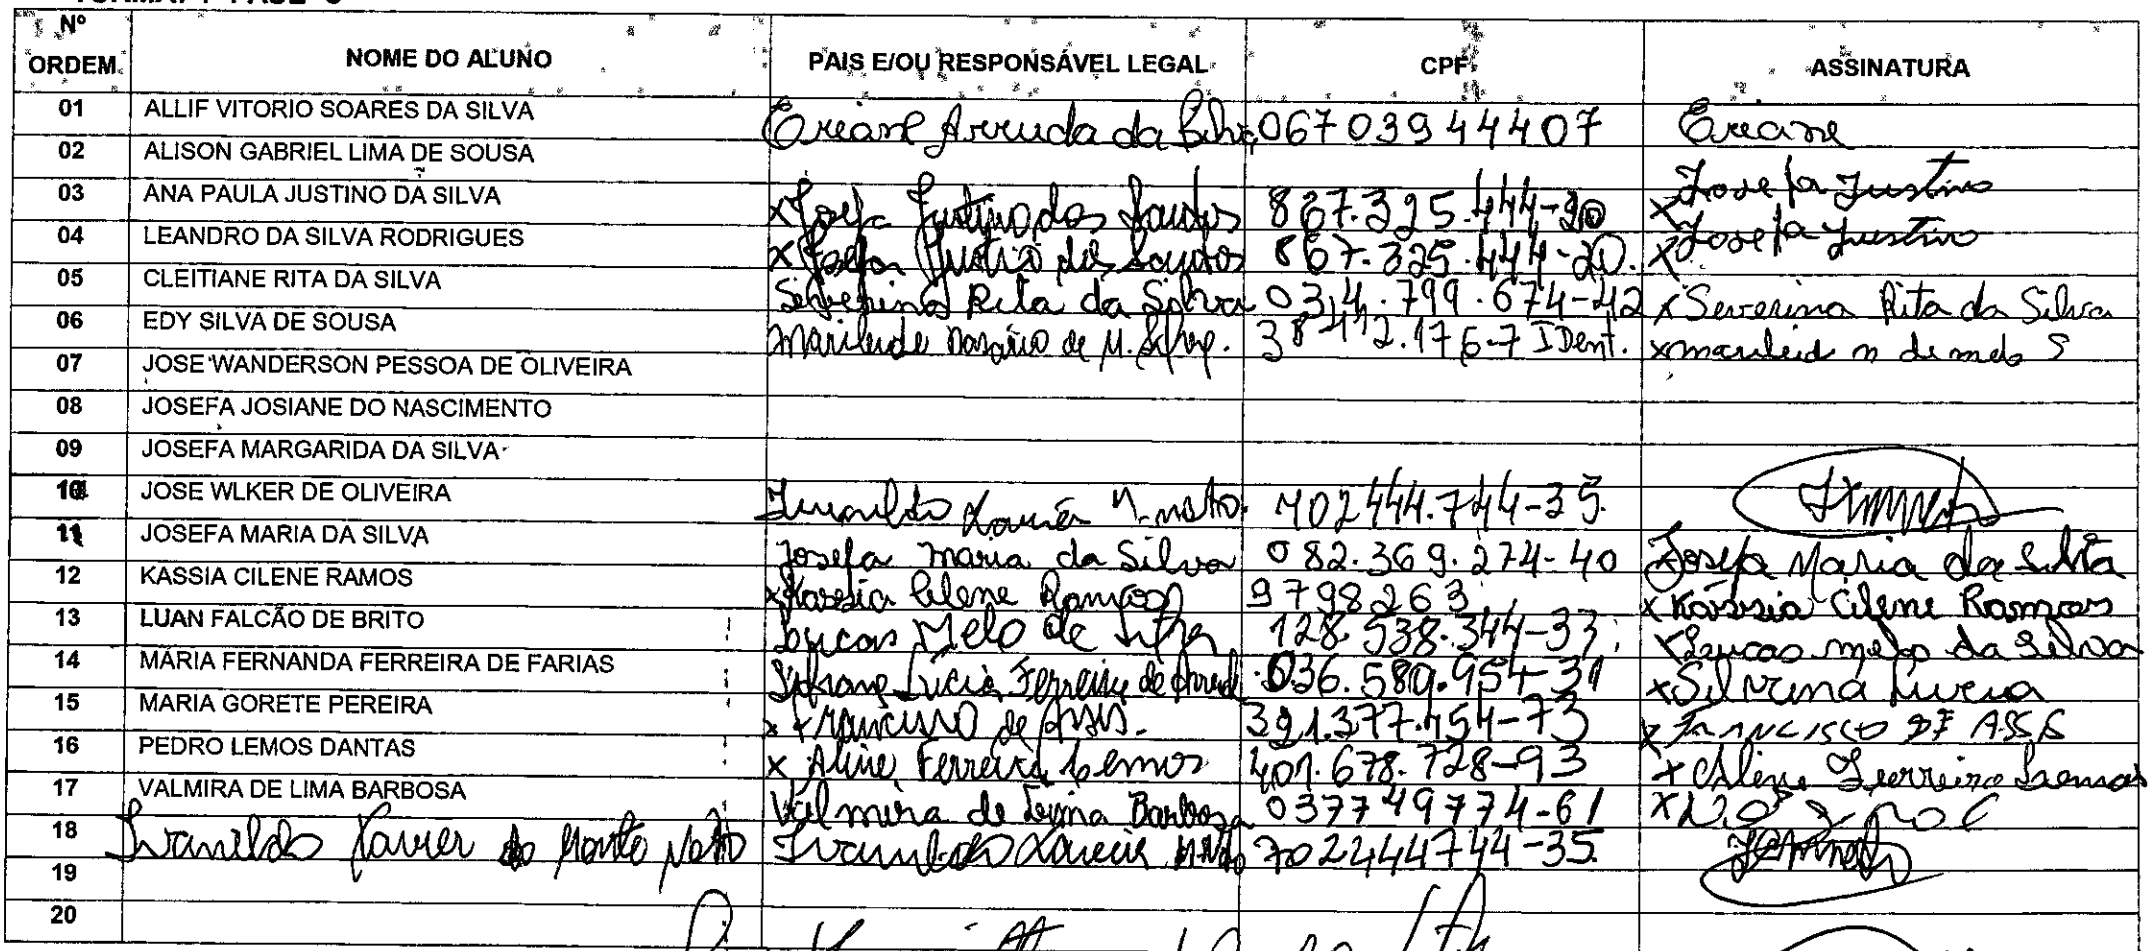 Nº ORDEM NOME DO ALUNO PAIS E/OU RESPONSÁVEL LEGAL CPF ASSINATURA
01 ALLIF VITORIO SOARES DA SILVA Ereane Arruda da Silva 06703944407 Ereane
02 ALISON GABRIEL LIMA DE SOUSA
03 ANA PAULA JUSTINO DA SILVA x Josefa Justino dos Santos 867.325.444-20 x Josefa Justino
04 LEANDRO DA SILVA RODRIGUES x Josefa Justino dos Santos 867.325.444-20. x Josefa Justino
05 CLEITIANE RITA DA SILVA Severina Rita da Silva 034.799.674-42 x Severina Rita da Silva
06 EDY SILVA DE SOUSA Marileide de M. 176-7 IDent. x marileid n de melo S
07 JOSE WANDERSON PESSOA DE OLIVEIRA
08 JOSEFA JOSIANE DO NASCIMENTO
09 JOSEFA MARGARIDA DA SILVA
10 JOSE WLKER DE OLIVEIRA Ivanildo Xavier M. neto. 702444.744-35.
11 JOSEFA MARIA DA SILVA Josefa maria da Silva 082.369.274-40 Josefa Maria da Silva
12 KASSIA CILENE RAMOS x Kassia Cilene Ramos 9798263 x Kássia Cilene Ramos
13 LUAN FALCÃO DE BRITO Lucas Melo de Silva 128.538.344-33 x Lucas melo da Silva
14 MARIA FERNANDA FERREIRA DE FARIAS Lucia Ferreira de 036.589.954-31 x
15 MARIA GORETE PEREIRA x Francisco de Assis. 391.377.454-73 x FRANCISCO DE ASSIS
16 PEDRO LEMOS DANTAS x Aline Ferreira Lemos 401.678.728-93 x Aline Ferreira Lemos
17 VALMIRA DE LIMA BARBOSA Valmira de Lima Barbosa 037749774-61 x
18 Ivanildo Xavier do Monte Neto Ivanildo Xavier 702444744-35
19
20